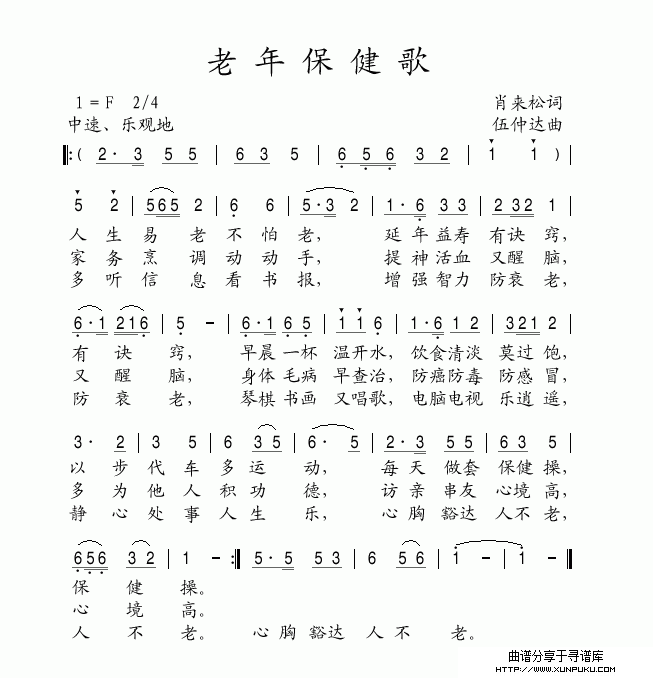 老年保健歌
1=F 2/4 肖来松词
中速、乐观地 伍仲达曲
‖:( 2· 3 5 5 | 6 3 5 | 6 5 6 3 2 | 1 1 ) |
5 2 | 565 2 | 6 6 | 5·3 2 | 1·6 33 | 2 32 1 |
人生易老不怕老, 延年益寿有诀窍,
家务烹调动动手, 提神活血又醒脑,
多听信息看书报, 增强智力防衰老,
6·1 216 | 5 - | 6·1 65 | 11 6 | 1·6 12 | 3212 |
有诀窍, 早晨一杯温开水, 饮食清淡莫过饱,
又醒脑, 身体毛病早查治, 防癌防毒防感冒,
防衰老, 琴棋书画又唱歌, 电脑电视乐逍遥,
3· 2 | 3 5 | 6 35 | 6· 5 | 2·3 55 | 63 5 |
以步代车多运动, 每天做套保健操,
多为他人积功德, 访亲串友心境高,
静心处事人生乐, 心胸豁达人不老,
656 32 | 1 - :‖ 5·5 53 | 6 56 | 1 - | 1 - ‖
保健操。
心境高。
人不老。 心胸豁达人不老。
曲谱分享于寻谱库
WWW.XUNPUKU.COM